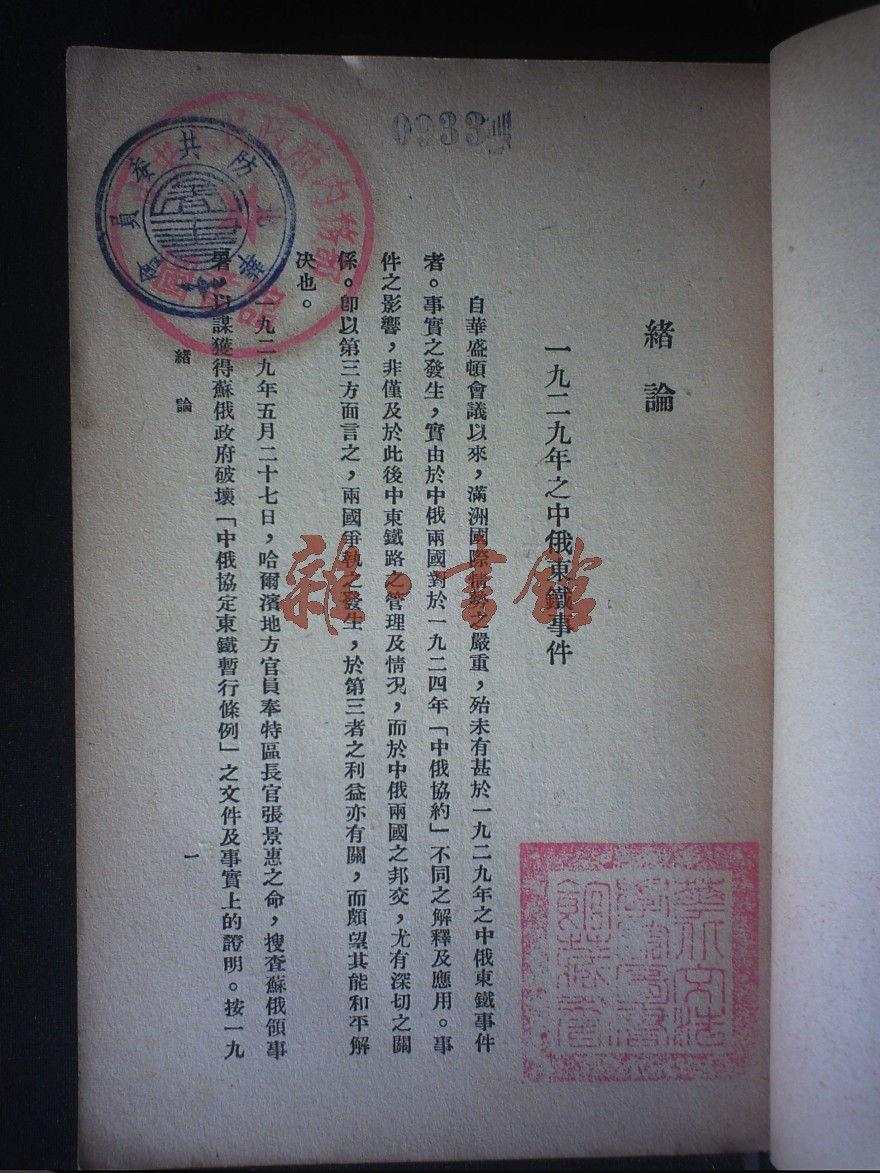 緒論
一九二九年之中俄東鐵事件
自華盛頓會議以來，滿洲國際情勢之嚴重，殆未有甚於一九二九年之中俄東鐵事件
者。事實之發生，實由於中俄兩國對於一九二四年「中俄協約」不同之解釋及應用。事
件之影響，非僅及於此後中東鐵路之管理及情況，而於中俄兩國之邦交，尤有深切之關
係。卽以第三方面言之，兩國爭執之發生，於第三者之利益亦有關，而頗望其能和平解
決也。
一九二九年五月二十七日，哈爾濱地方官員奉特區長官張景惠之命，搜查蘇俄領事
署，以謀獲得蘇俄政府破壞「中俄協定東鐵暫行條例」之文件及事實上的證明。按一九
緒論
一
0933
華北防共委員會
政府內務部
雜·書館